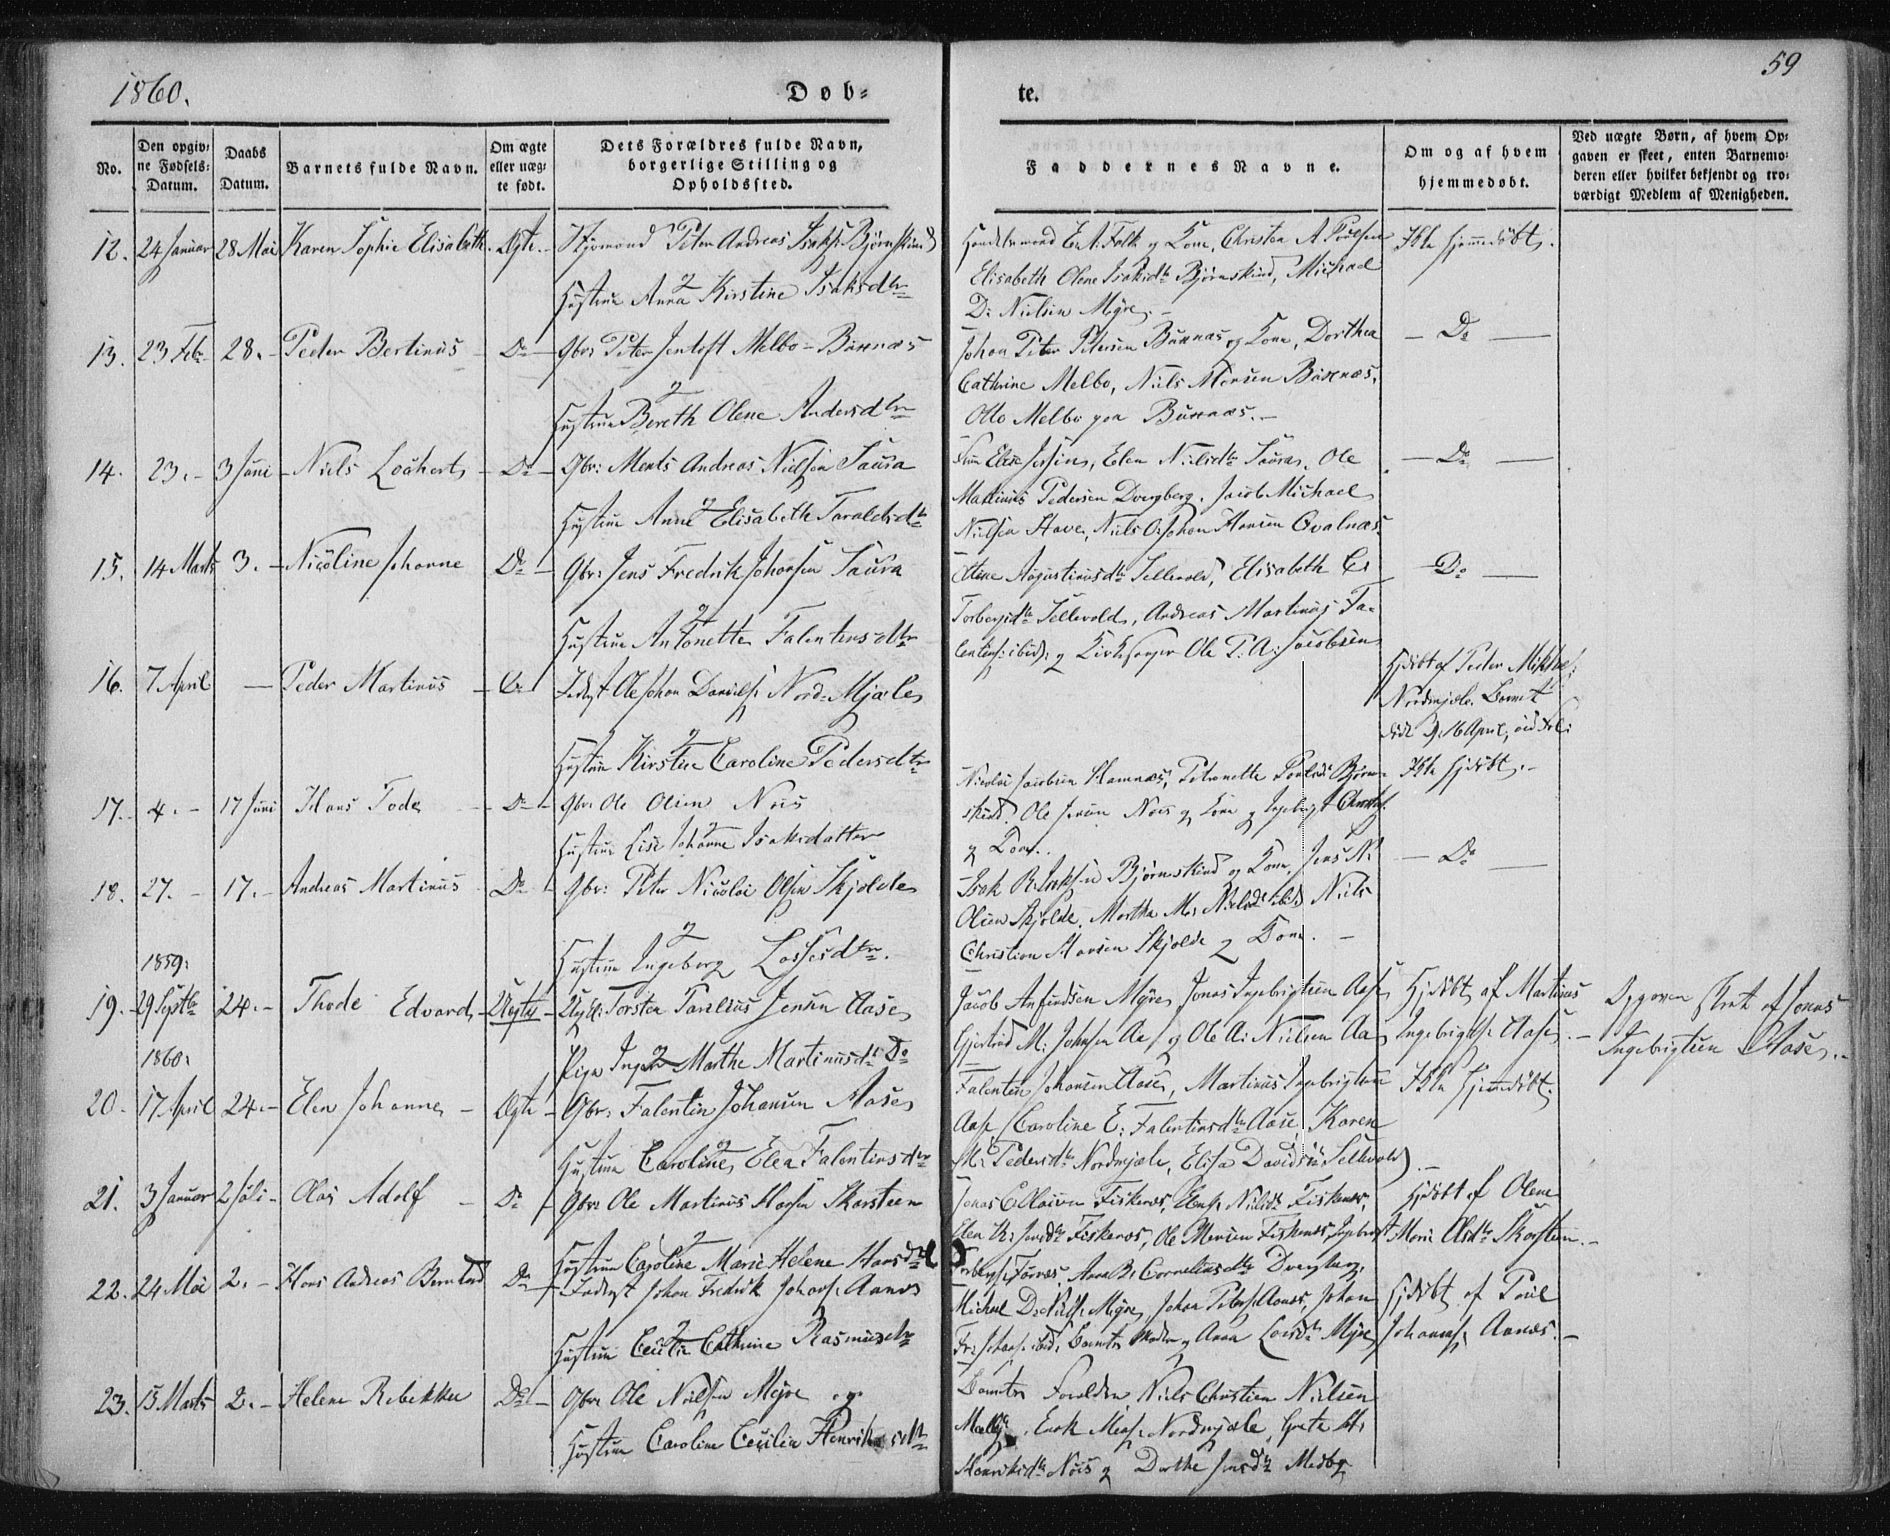 1860.
Døb-
te.
59
No.
Den opgiv-
ne Fødsels-
Datum.
Daabs
Datum.
Barnets fulde Navn.
Om ægte
eller uæg-
te født.
Dets Forældres fulde Navn,
borgerlige Stilling og
Opholdssted.
Faddernes Navne.
Om og af hvem
hjemmedøbt.
Ved uægte Børn, af hvem Op-
gaven er skeet, enten Barnemo-
deren eller hvilket bekjendt og tro-
værdigt Medlem af Menigheden.
12. 24 Januar 28 Mai Karen Sophie Elisabeth Ægte Peter Andreas Bjørnskind
Hustrue Anna Kirstine Isaksdtr
Handelsmand E. A. Falk og Kone, Christen A. Poulsen
Elisabeth Olene Isaksdtr Bjørnskind, Michael
D. Nielsen Myre.
hjemmedøbt.
13. 23 Febr 28. Peder Bertinus Do Gbr: Peter Jentoft Melbo
Hustrue Bereth Olene Andersdtr
Johan Peter Petersen og Kone, Dorthea
Cathrine Melbo, Niels
Otto Melbo paa
Do
14. 23. 3 Juni Niels Lockert Do Gbr: Ments Andreas Nielsen Saura
Hustrue Anne Elisabeth Taraldsdtr
Elen Nielsdtr Saura, Ole
Martinus Pedersen Dverberg, Jacob Michael
Nielsen Have, Niels O. Johan Hansen Qvalnæs.
Do
15. 14 Marts 3. Nicoline Johanne Do Gbr: Jens Fredrik Johansen Saura
Hustrue Antonette Falentinsdtr
Augustinusdtr Sellevold, Elisabeth C:
Torbergsdtr Sellevold, Andreas Martinus Fa-
lentins: ibid: og Kirkesanger Ole T. A. Jacobsen
Do
16. 7 April — Peder Martinus Do Ole Johan Daniels: Nord-Mjæle
Hustrue Kirstine Caroline Pedersdtr
Hjdøbt af Peder Mikkels:
Nordmjæle. Barnet
død 16 April,
17. 4. 17 Juni Hans Tode Do Gbr Ole Olsen Nøis
Hustrue Lise Johanne Isaksdatter
Nicolai Jacobsen Hamnæs, Petronelle Bjørn-
skind, Ole Jensen Nøis og Kone og Ingebrigt
og Kone.
hjdøbt.
18. 27. 17. Andreas Martinus Do Gbr: Peter Nicolai Olsen Skjolde
Hustrue Ingeborg Lassesdtr.
Isak R. Isaksen Bjørnskind og Kone, Jens N:
Olsen Skjolde, Martha M: Nielsdtr ibid: Niels
Christian Hansen Skjolde og Kone.
Do
1859:
19. 29 Septbr 24. Thode Edvard Uægte Ungk: Torsten Parelius Jensen Aase
Pige Inger Marthe Martinusdtr Do
Jacob Anfindsen Myre, Jonas Ingebrigtsen Aase
Gjertrud M: Johnsen Aase og Ole A: Nielsen Aas
Hjdøbt af Martinus
Ingebrigts: Aase.
Opgaven skeet af Jonas
Ingebrigtsen Aase.
1860:
20. 17 April 24. Elen Johanne Ægte Gbr: Falentin Johansen Aase
Hustrue Caroline Elea Falentinsdtr
Falentin Johansen Aase, Martinus Ingebrigtsen
Aase Caroline E: Falentinsdtr Aase, Karen
M: Pedersdtr Nordmjæle, Elisa Davidsdtr Sellevold
hjemmedøbt.
21. 3 Januar 2 Juli Olai Adolf Do Gbr: Ole Martinus Hansen Skarsteen
Hustrue Caroline Marie Helene Hansdtr
Jonas Olaisen Fiskenæs, Nielsdtr Fiskenæs,
Elen K: Jensdtr Fiskenæs, Ole Monsen Fiskenæs, Ingebregt
Hjdøbt af Olene
Marie Olsdtr Skarsteen.
22. 24 Mai 2. Hans Andreas Do Johan Fredrik Johans: Aanæs
Hustrue Cecilie Cathrine Rasmusdtr
Anna B: Corneliusdtr Dverberg,
Michael D: Niels: Myre, Johan Peters: Aanæs, Johan
Fr: Johans: ibid, Barnets Moder og Anna Larsdtr Myre
Hjdøbt af Poul
Johans: Aanæs.
23. 15 Marts 2. Helene Rebekka Do Gbr: Ole Nielsen Myre og
Hustrue Caroline Cecilia Henriksdtr
Barnets Forældre, Niels Christian Nielsen
Nordmjæle, Grete H:
Henriksdtr Nøis og Dorthe Jensdtr Medby